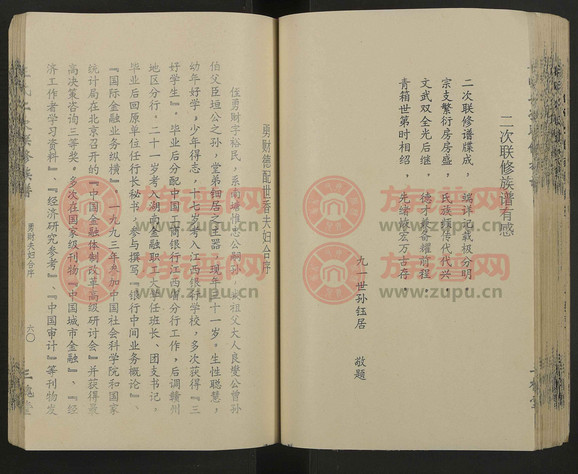 二次联修族谱有感
二次联修谱牒成，编详记载极分明，
宗支繁衍房房盛，氏族相传代代兴，
文武双全光后继，德才兼备耀前程，
青箱世第时相绍，先绪恢宏万古存，
九一世孙钰居 敬题
勇财德配世香夫妇合序
侄勇财字裕民，系南峰惟志公嗣孙 祖父大人良燮公曾孙
伯父臣垣公之孙，堂弟细居之主器，现年三十一岁。生性聪慧，
幼年好学，少年得志，十七岁考入江西银行学校，多次获得『三
好学生』。毕业后分配中国工商银行江西省分行工作，后调赣州
地区分行，二十一岁考入湖南金融职工大学任班长、团支书记，
毕业后回原单位任行长秘书，参与撰写『银行中间业务概论』、
『国际金融业务纵横』，一九九三年参加中国社会科学院和国家
统计局在北京召开的『中国金融体制改革高级研讨会』并获得最
高决策咨询三等奖，多次在国家级刊物『中国城市金融』、『经
济工作者学习资料』、『经济研究参考』、『中国审计』等刊物发
勇财夫妇合序
六〇
三槐堂
族谱网
www.zupu.cn
族谱网
www.zupu.cn
族谱网
www.zupu.cn
族谱网
www.zupu.cn